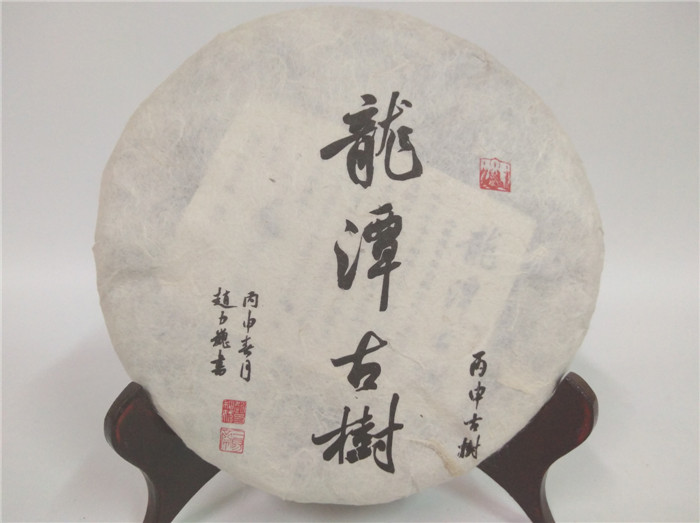 龍潭古樹
丙申古樹
丙申春月
趙力趣書